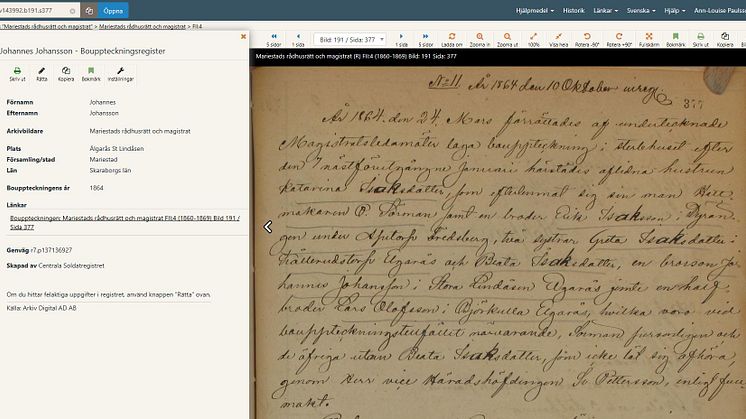 v143992.b191.s377
Öppna
Hjälpmedel
Historik
Länkar
Svenska
Hjälp
Ann-Louise Paulsso
"Mariestads rådhusrätt och magistrat" > Mariestads rådhusrätt och magistrat > FII:4
Johannes Johansson - Bouppteckningsregister
Skriv ut
Rätta
Kopiera
Bokmärk
Inställningar
Förnamn Johannes
Efternamn Johansson
Arkivbildare Mariestads rådhusrätt och magistrat
Plats Älgarås St Lindåsen
Församling/stad Mariestad
Län Skaraborgs län
Bouppteckningens år 1864
Länkar
Bouppteckningen: Mariestads rådhusrätt och magistrat FII:4 (1860-1869) Bild 191 /
Sida 377
Genväg r7.p137136927
Skapad av Centrala Soldatregistret
Om du hittar felaktiga uppgifter i registret, använd knappen "Rätta" ovan.
Källa: Arkiv Digital AD AB
5 sidor
1 sida
Bild: 191 / Sida: 377
1 sida
5 sidor
Ladda om
Zooma in
Zooma ut
100%
Visa hela
Rotera -90°
Rotera +90°
Fullskärm
Bokmärk
Skriv ut
Kopiera
Mariestads rådhusrätt och magistrat (R) FII:4 (1860-1869) Bild: 191 Sida: 377
N:o 11. År 1864 den 10 Oktober inreg.
377
År 1864 den 24 Mars förrättades af undertecknade
Magistratsledamöter laga bouppteckning i sterbhuset efter
den 7 nästförutgångne Januari härstädes aflidna hustrun
Katarina Isaksdotter, som efterlemnat sig sin man Hatt
makaren P. Forman samt en broder Erik Isaksson i Dyran
gen under Fredsberg, två systrar Greta Isaksdotter i
Elgarås och Beata Isaksdotter, en brorson Jo
hannis Johansson i Stora Lindåsen Elgarås jemte en half
broder Lars Olofsson i Björkulla Elgarås, hvilka voro vid
bouppteckningstillfället närvarande, Forman personligen och
de öfriga utom Beata Isaksdotter, som icke lät sig afhöra
genom Herr vice Häradshöfdingen Sv. Pettersson, enligt full
makt.